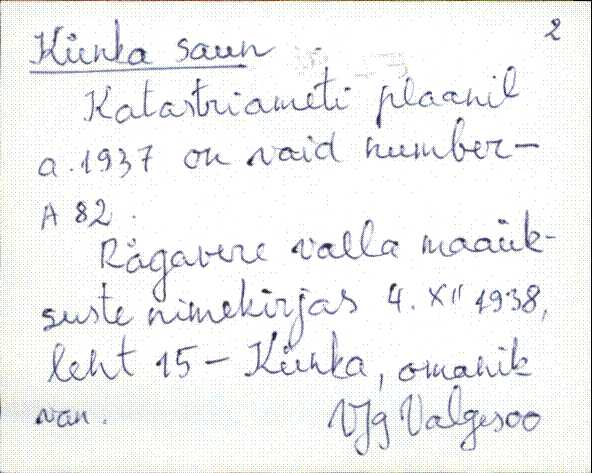 2
Künka saun
Katastriameti plaanil
a. 1937 on vaid number –
A 82.
Rägavere valla maaük-
suste nimekirjas 4. XII 1938,
leht 15 – Künka, omanik
van.
VJg Valgesoo